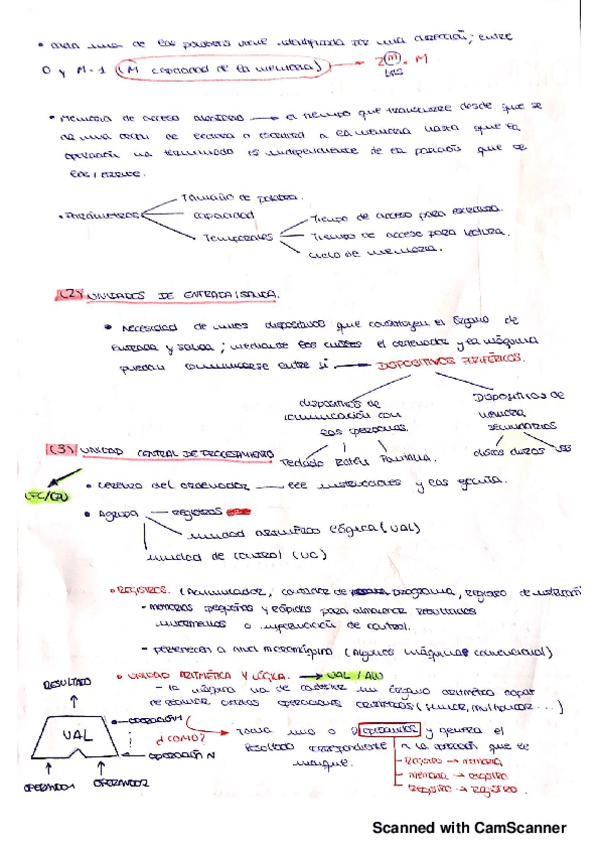 • Cada una de las palabras viene identificada por una dirección; entre
0 y M-1 (M capacidad de la memoria) → 2^m = M
• Memoria de acceso aleatorio → el tiempo que transcurre desde que se
da una orden de lectura o escritura a la memoria hasta que la
operación ha terminado es independiente de la posición que se
lea/escribe.
• Parámetros
Tamaño de palabra.
capacidad
Temporales
Tiempo de acceso para escritura.
Tiempo de acceso para lectura.
ciclo de memoria.
(2) UNIDADES DE ENTRADA/SALIDA.
• Necesidad de unos dispositivos que constituyen el órgano de
Entrada y salida; mediante los cuales el ordenador y la máquina
puedan comunicarse entre sí → DISPOSITIVOS PERIFÉRICOS.
dispositivos de
comunicación con
las personas.
Dispositivos de
memoria
secundarios
Teclado Ratón Pantalla.
discos duros USB
(3) UNIDAD CENTRAL DE PROCESAMIENTO
UPC/CPU
• Cerebro del ordenador — lee instrucciones y las ejecuta.
• Agrupa — registros
unidad aritmético lógica (UAL)
unidad de control (UC)
• REGISTROS. (Acumulador, contador de programa, registro de instrucción
- memorias pequeñas y rápidas para almacenar resultados
intermedios o información de control.
- pertenecen a nivel micromáquina (Algunos máquina convencional)
• UNIDAD ARITMÉTICA Y LÓGICA. → UAL / ALU
- la máquina ha de contener un órgano aritmético capaz
de realizar ciertas operaciones (sumar, multiplicar...)
RESULTADO
UAL
OPERACIÓN 1
OPERACIÓN N
OPERANDO1
OPERANDO2
¿CÓMO?
Toma uno o 2 operandos y genera el
resultado correspondiente a la operación que se
indique.
- Registro → memoria
- memoria → registro
- Registro → registro.
Scanned with CamScanner